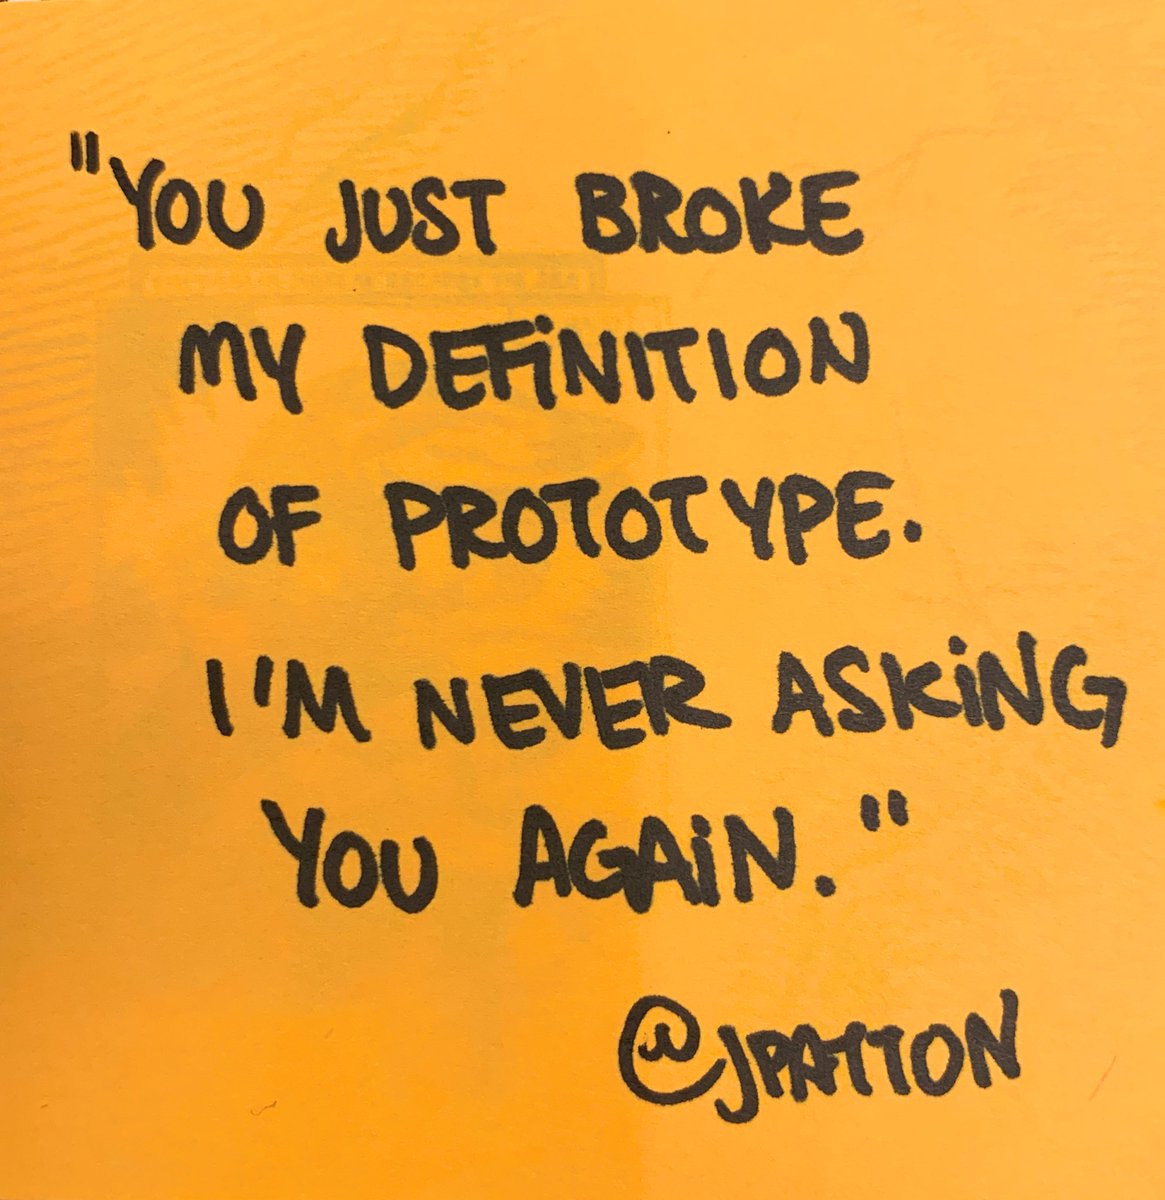 "YOU JUST BROKE
MY DEFiNITION
OF PROTOTYPE.
I'M NEVER ASKiNG
YOU AGAiN."
@JPATTON